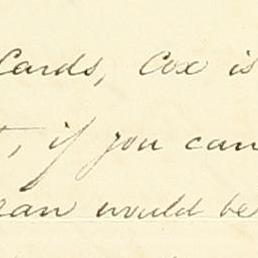 Cards, Cox is
, if you can
would be